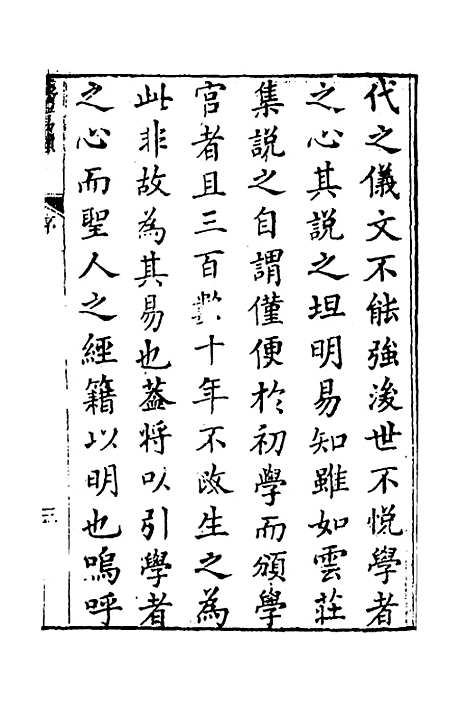 代之儀文不能強後世不悅學者
之心其說之坦明易知雖如雲莊
集說之自謂僅便於初學而頒學
宮者且三百數十年不改生之為
此非故為其易也葢將以引學者
之心而聖人之經籍以明也嗚呼
序
三